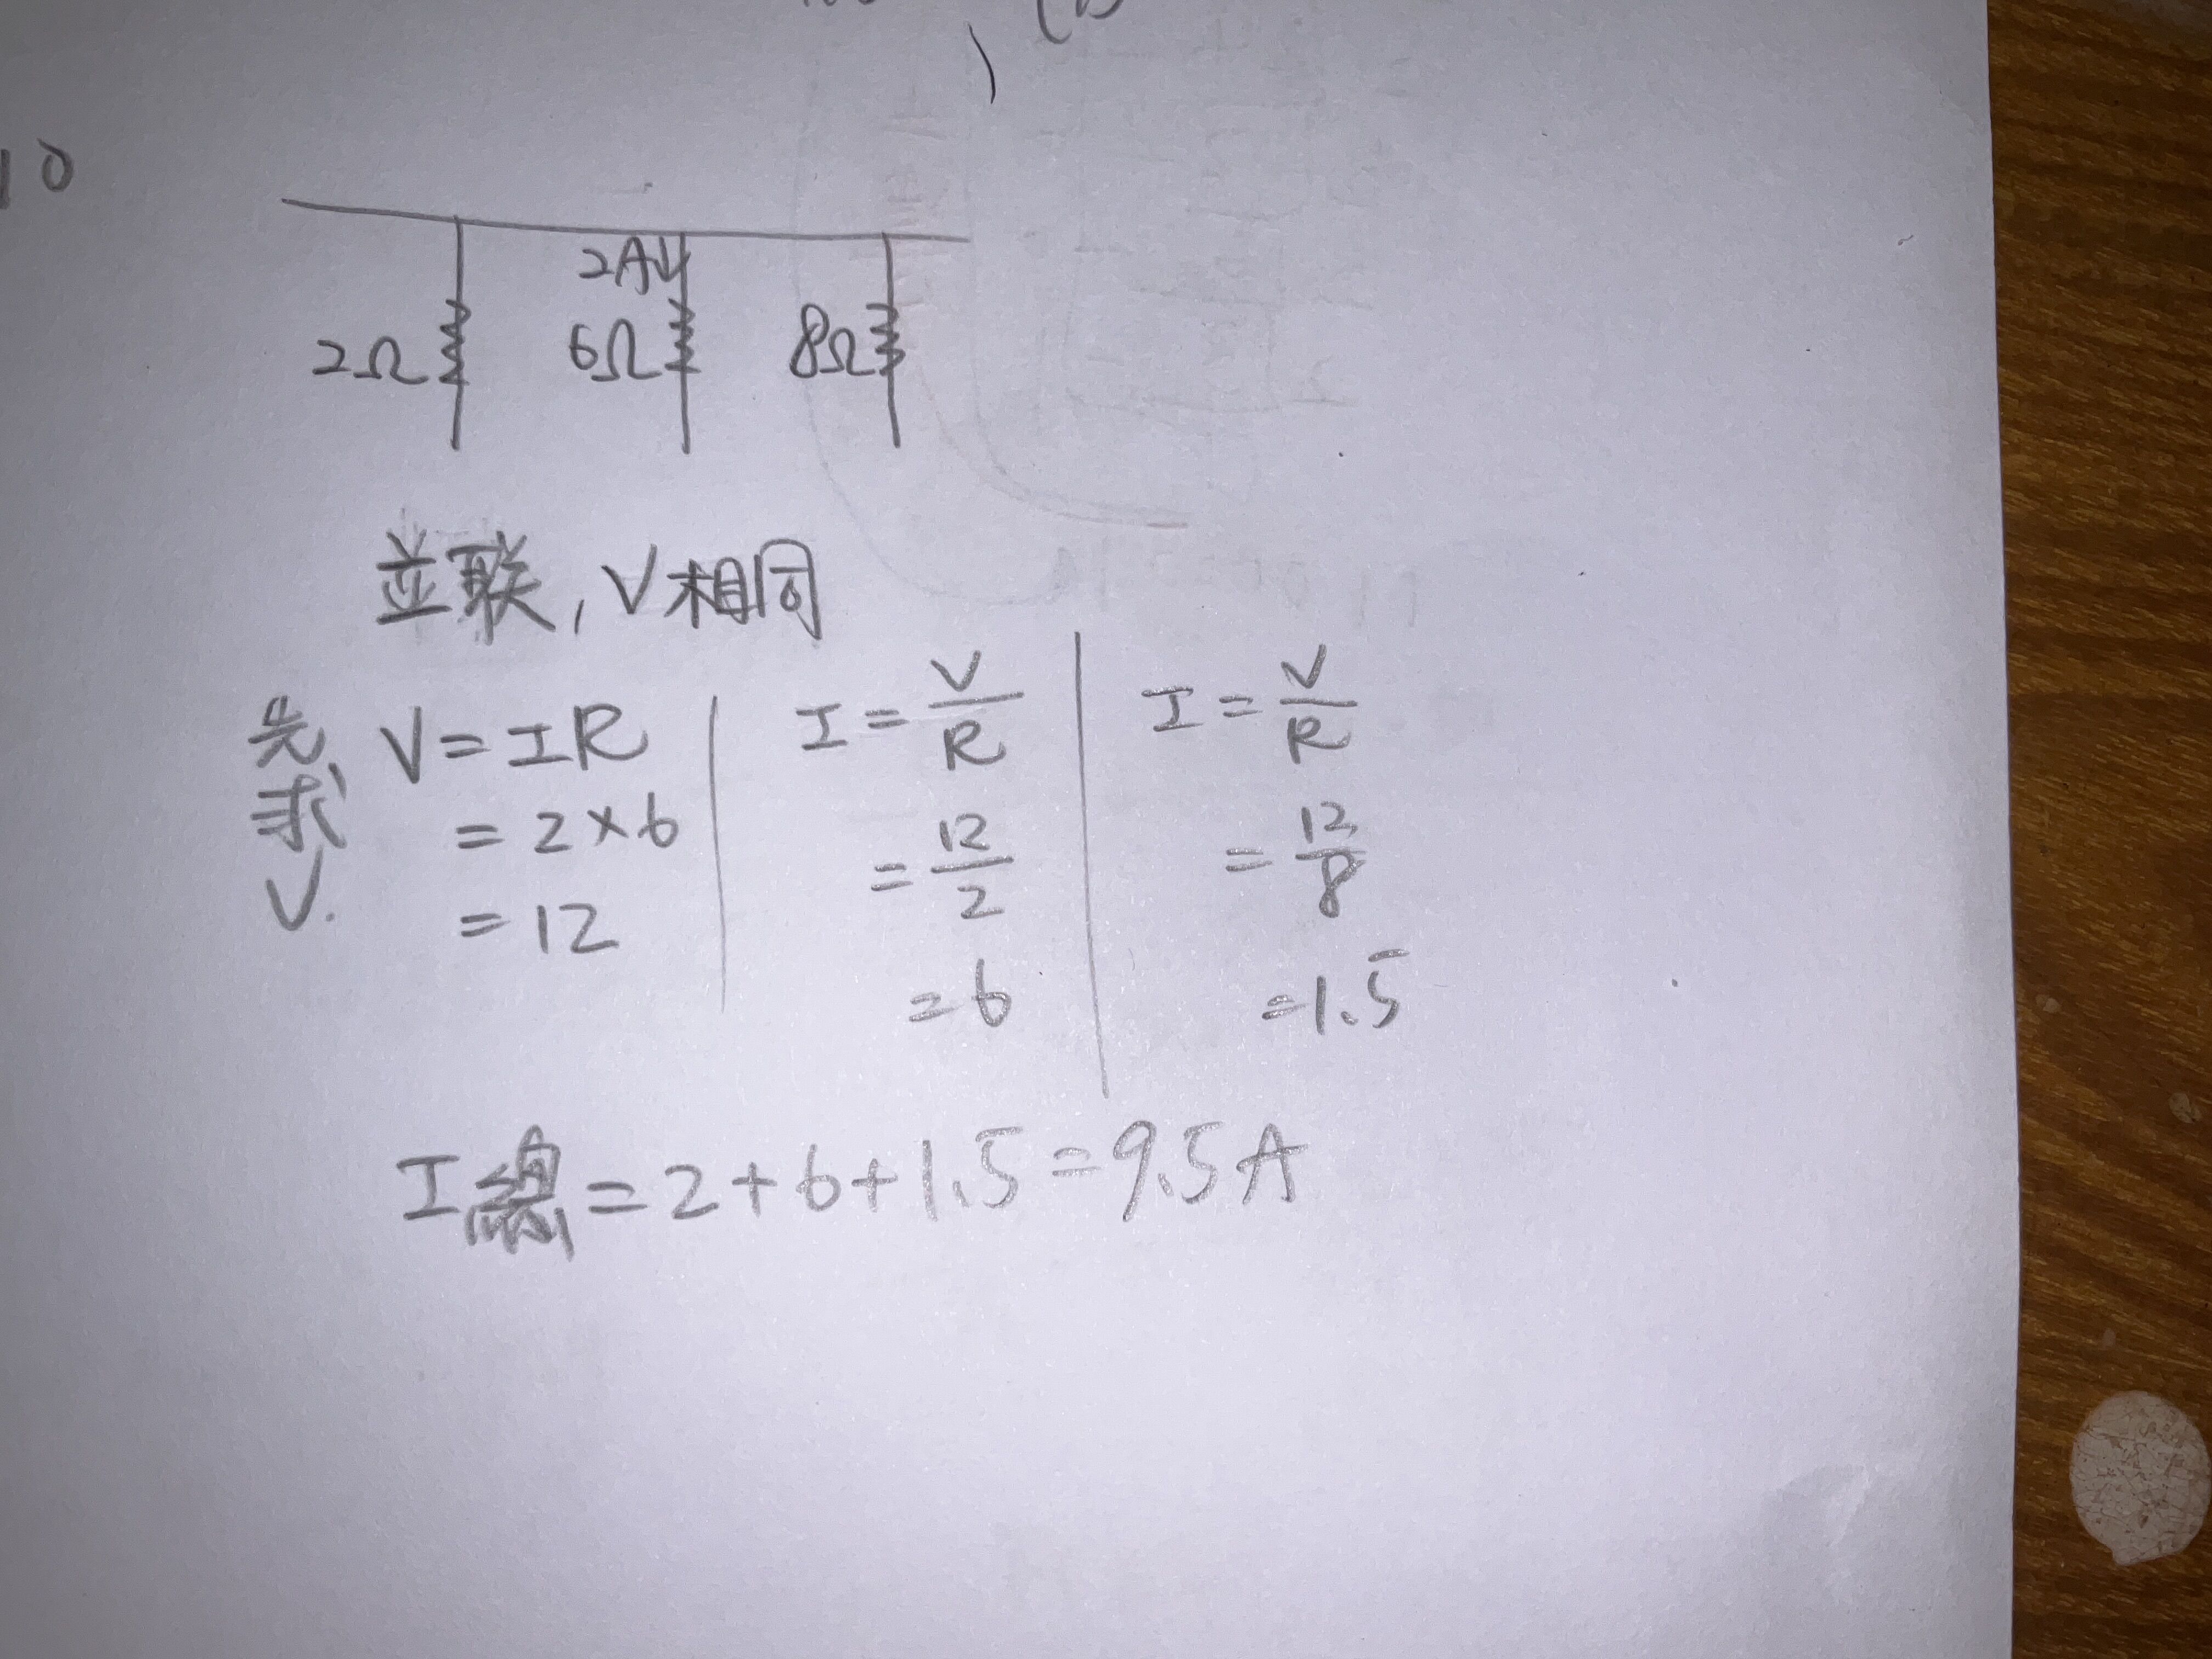 10
2A
2Ω 6Ω 8Ω
並联, V相同
先求V.
V = IR
= 2×6
= 12
I = V/R
= 12/2
= 6
I = V/R
= 12/8
= 1.5
I總 = 2+6+1.5 = 9.5A